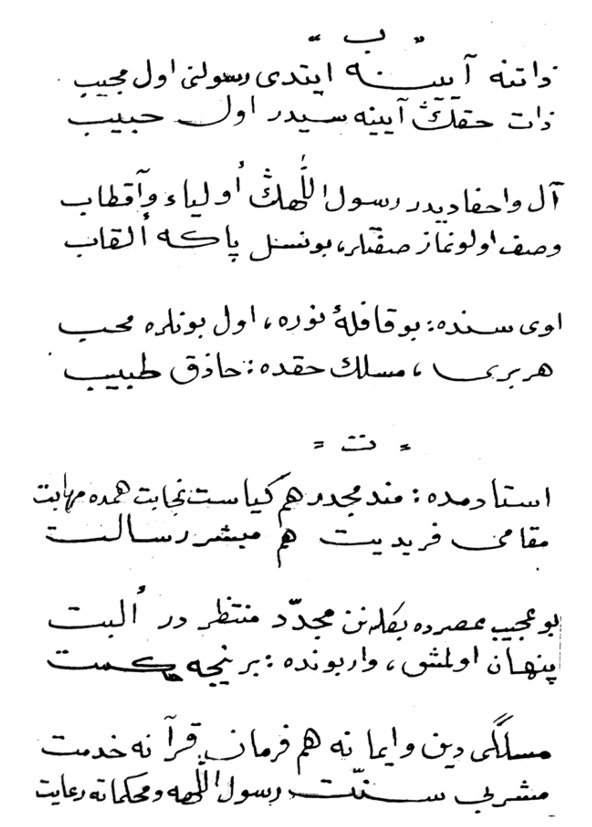 ب
ذاتنه آيينه ايتدى رسولنى اول مجيب
ذات حقڭ آيينه سيدر اول حبيب
آل واحفاديدر رسول اللّٰهڭ أولياء وآقطاب
وصف اولونماز صفتلر، بونسل پاكه ألقاب
اوى سنده: بوقافلهٔ نوره، اول بونلره محب
هربرى، مسلك حقده: حاذق طبيب
= ت =
استادمده: مندمجدر هم كياست نجابت همده مهابت
مقامى فريديت هم مبشر رسالت
بوعجيب عصرده بكله نن مجدّد منتظر در ألبت
پنهان اولمش، واربونده: برنيجه حكمت
مسلگى دين وايمانه هم فرمان قرآنه خدمت
مشربى سنّت رسول اللّٰهه ومحكماته رعايت